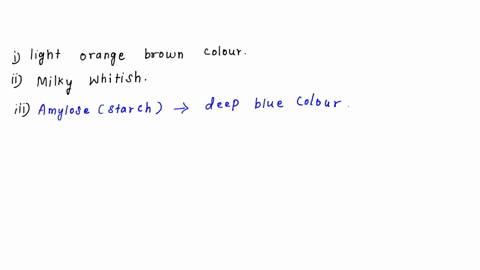 i) light orange brown colour.
ii) Milky Whitish.
iii) Amylose (starch) → deep blue colour.